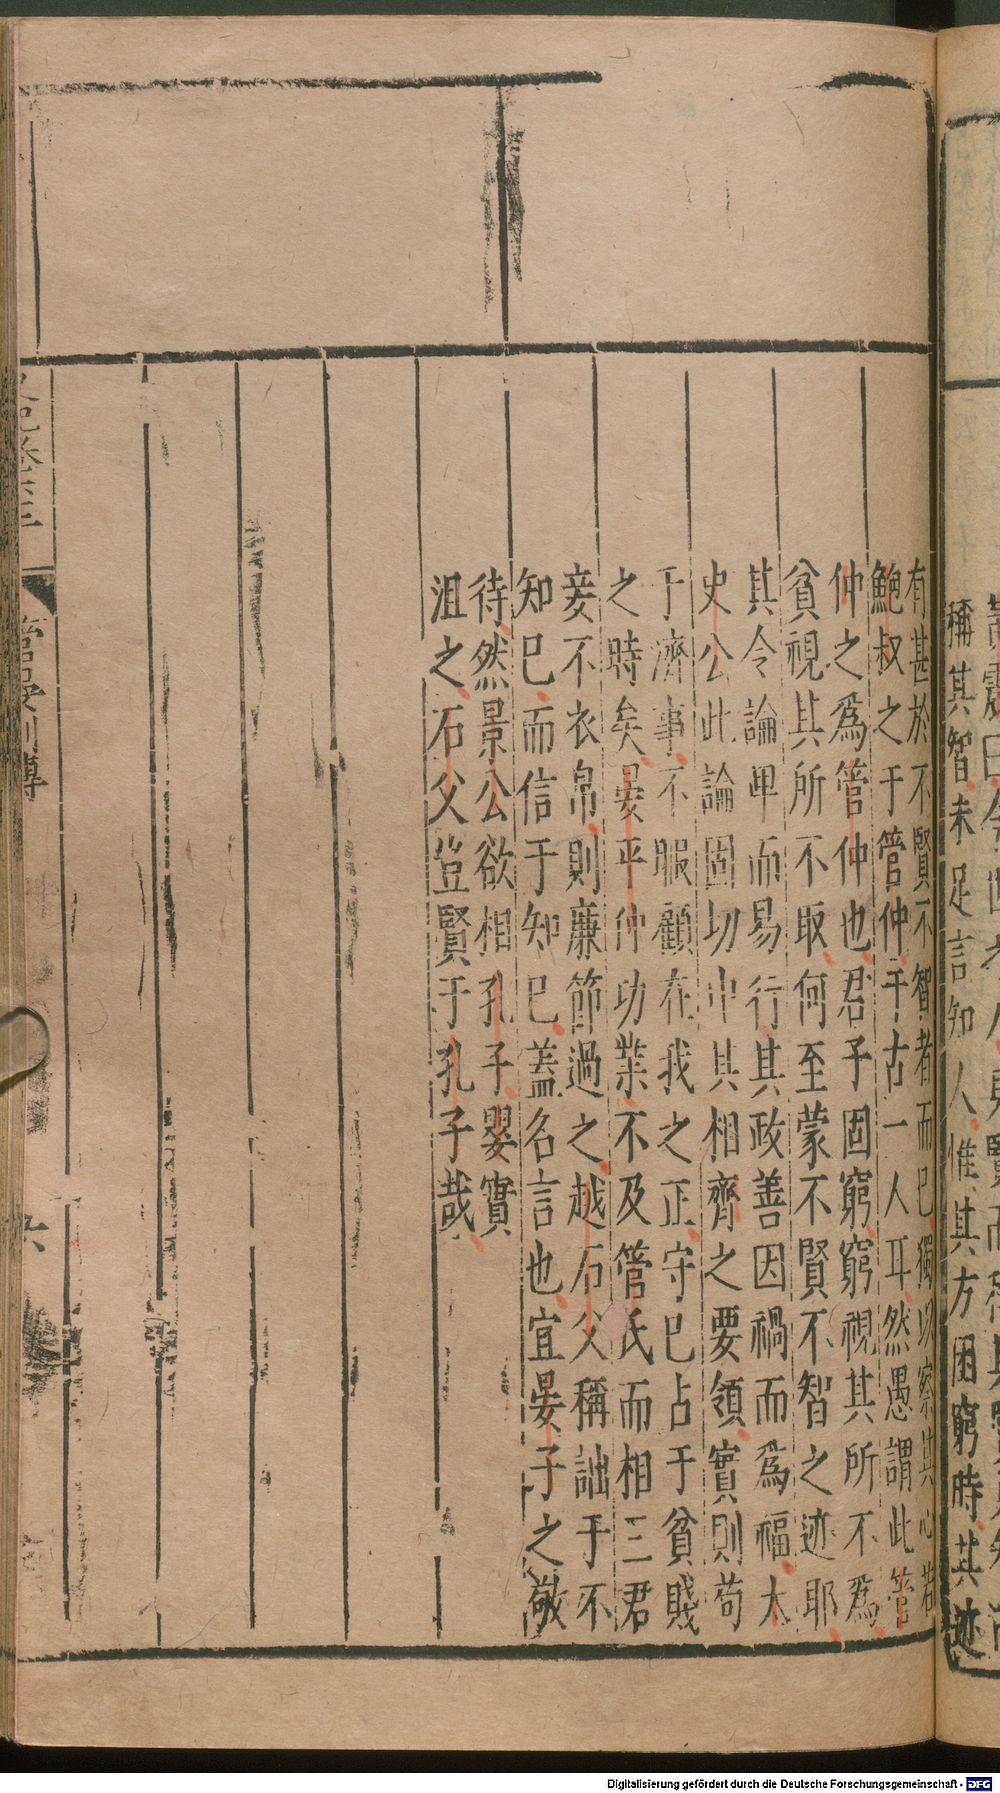 稱其智未足言知人惟其方困窮時其迹
有甚於不賢不智者而已獨以察其心若
鮑叔之于管仲千古一人耳然愚謂此管
仲之爲管仲也君子固窮窮視其所不爲
貧視其所不取何至蒙不賢不智之迹耶
其令論卑而易行其政善因禍而爲福太
史公此論固切中其相齊之要領實則苟
于濟事不暇顧在我之正守已占于貧賤
之時矣晏平仲功業不及管氏而相三君
妾不衣帛則廉節過之越石父稱詘于不
知已而信于知已蓋名言也宜晏子之敬
待然景公欲相孔子嬰實
沮之石父豈賢于孔子哉
管晏列傳
六
Digitalisierung gefördert durch die Deutsche Forschungsgemeinschaft - DFG